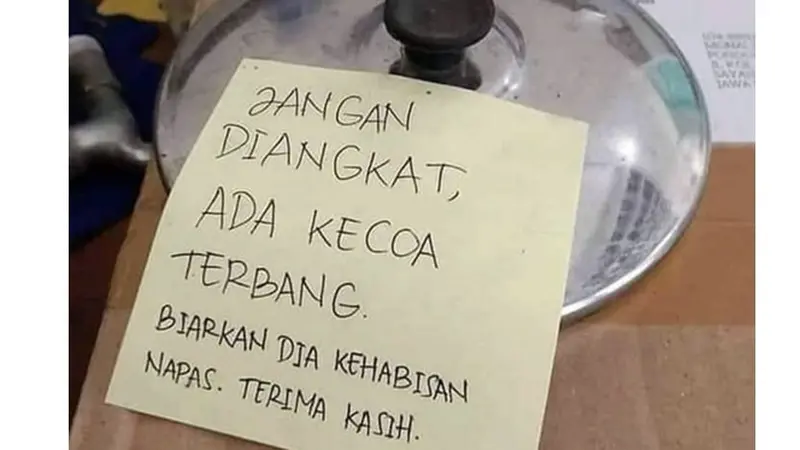 JANGAN
DIANGKAT,
ADA KECOA
TERBANG.
BIARKAN DIA KEHABISAN
NAPAS. TERIMA KASIH.